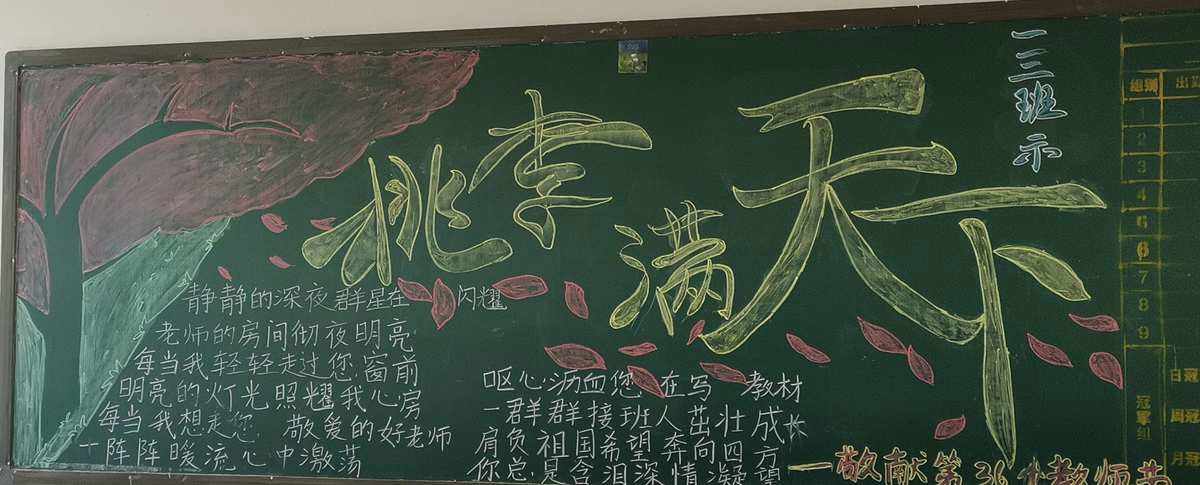 桃李满天下
一三班示
静静的深夜群星在闪耀
老师的房间彻夜明亮
每当我轻轻走过您窗前
明亮的灯光照耀我心房
每当我想走您 敬爱的好老师
一阵阵暖流心中激荡
呕心沥血您在写教材
一群群接班人茁壮成
肩负祖国希望奔向四方
你总是含泪深情凝望
一敬献第36个教师节
组别
1
2
3
4
5
6
7
8
9
冠军组
日冠
周冠
月冠